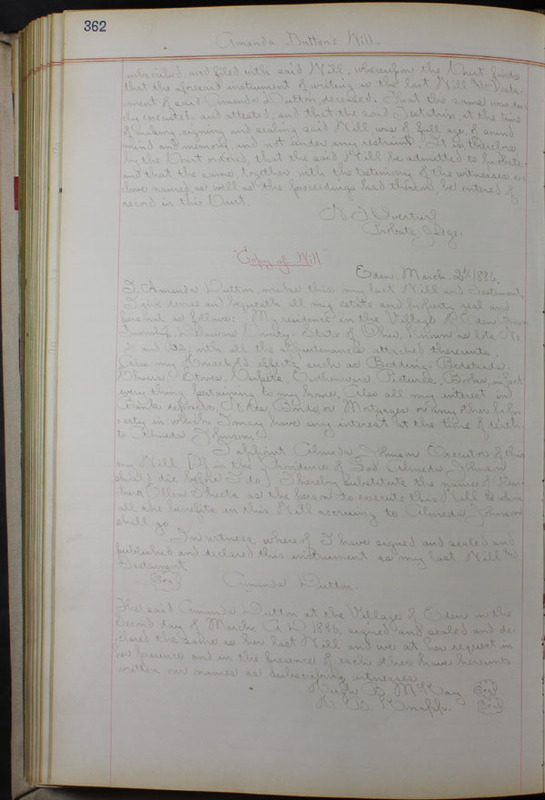 362
Amanda Dutton's Will.
subscribed, and filed with said Will, wherefore the Court finds
that the foresaid instrument of writing is the last Will & Testa
ment of said Amanda Dutton, deceased. That the same was du
ly executed and attested; and that the said Testatrix at the time
of making, signing and sealing said Will was of full age, of sound
mind and memory, and not under any restraint. It is therefore
by the Court ordered, that the said Will be admitted to Probate
and that the same together with the testimony of the witnesses a
bove named, as well as the proceedings had thereon be entered of
record in this Court.
Overturf
Probate Judge.
"Copy of Will"
Eden March 2d 1886.
I, Amanda Dutton, make this my last Will and Testament,
I give devise and bequeath all my estate and property real and
personal as follows: My residence in the Village of Eden
Township Delaware County State of Ohio, Known as lots No
and with all the appurtenances attached thereunto.
Also my Household effects such as Bedding, Bedsteads,
Chairs, Stoves, Carpets, Pictures, Books, in fact
every thing pertaining to my home, Also all my interest in
Bank deposits, Notes Bonds or Mortgages or any other prop
erty in which I may have any interest at the time of death
to Almeda Johnson
I appoint Almeda Johnson Executor of this
my Will [If in the Providence of God Almeda Johnson
should die before I do] I hereby substitute the name of
Ellen Sheets as the person to execute this Will to whom
all the benefits in this Will accruing to Almeda Johnson
shall go
In witness, where of I have signed and sealed and
published and declared this instrument as my last Will and
Testament
Seal Amanda Dutton.
The said Amanda Dutton at the Village of Eden on the
Second day of March A. D. 1886. signed and sealed and de
clared the same as her last Will and we at her request in
her presence and in the presence of each other have hereunto
written our names as subscribing witnesses
Hugh B. McKay Seal
Knapp. Seal